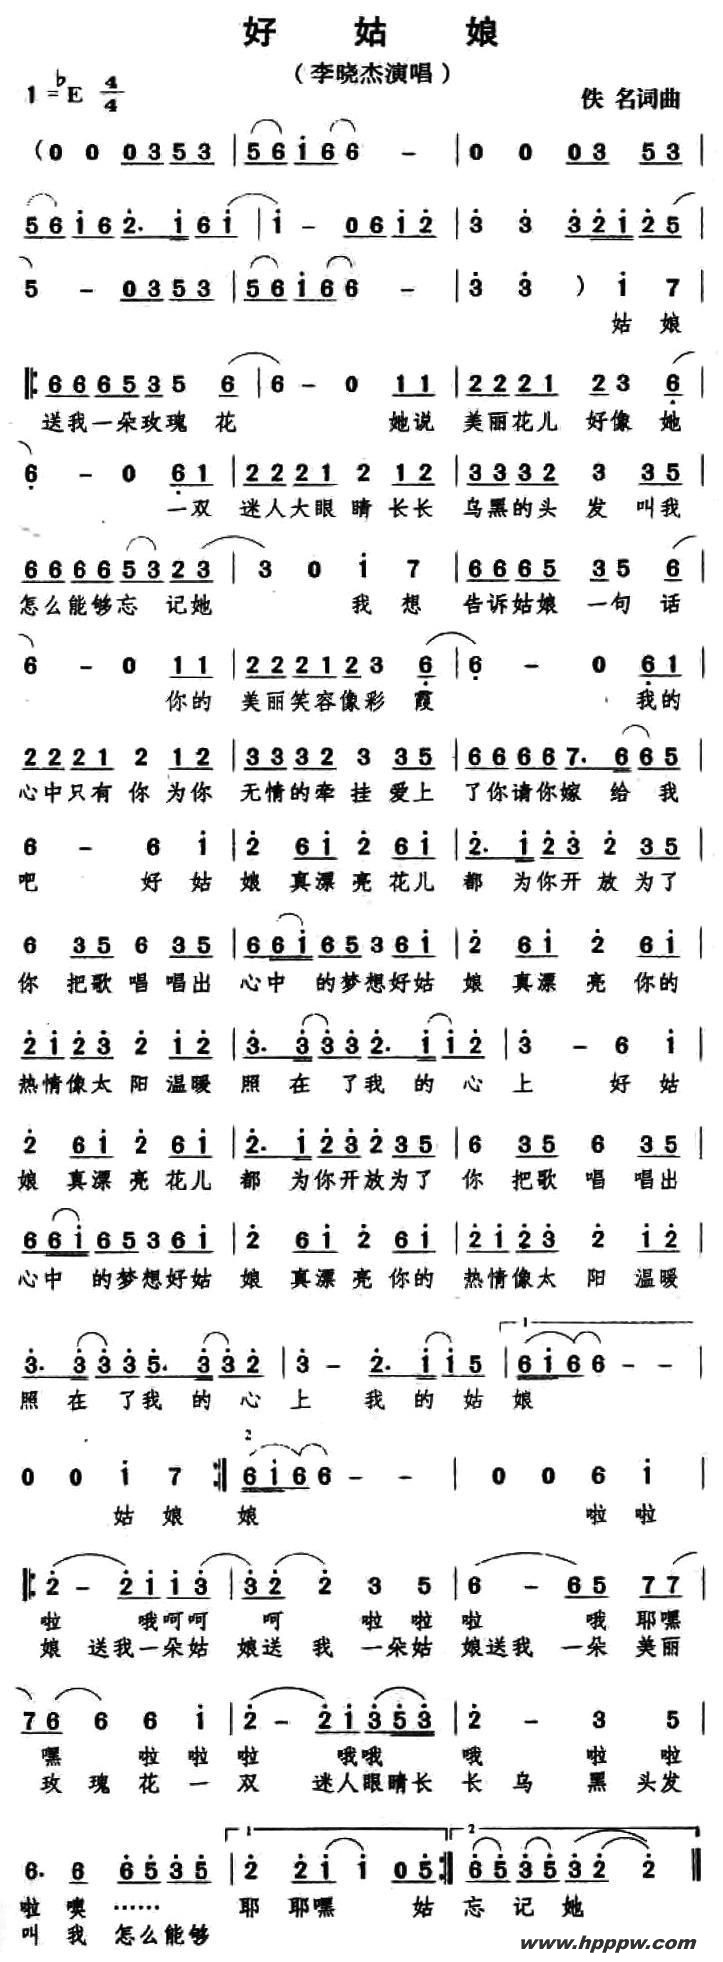 好 姑 娘
（李晓杰演唱）
1=♭E 4/4
佚 名词曲
（0 0 0353 | 56i66 - | 0 0 03 53 |
56i62. i6i | i - 06i2 | 3 3 32i25 |
5 - 0353 | 56i66 - | 3 3 ） i 7 |
姑 娘
‖: 6665355 6 | 6 - 0 11 | 2221 23 6 |
送我一朵玫瑰 花 她说 美丽花儿 好像 她
6 - 0 61 | 2221 2 12 | 3332 3 35 |
一双 迷人大眼 睛 长长 乌黑的头 发 叫我
66665323 | 3 0 i 7 | 6665 35 6 |
怎么能够忘 记她 我 想 告诉姑娘 一句 话
6 - 0 11 | 222123 6 | 6 - 0 61 |
你的 美丽笑容像彩 霞 我的
2221 2 12 | 3332 3 35 | 66667. 665 |
心中只有 你 为你 无情的牵 挂 爱上 了你请你嫁 给 我
6 - 6 i | 2 6i 2 6i | 2. i23 2 35 |
吧 好 姑 娘 真漂 亮 花儿 都 为你开 放 为了
6 35 6 35 | 66i6536i | 2 6i 2 6i |
你 把歌 唱 唱出 心中 的梦想好姑 娘 真漂 亮 你的
2i23 2 i2 | 3. 3332. ii2 | 3 - 6 i |
热情像太 阳 温暖 照 在 了我 的 心 上 好 姑
2 6i 2 6i | 2. i23235 | 6 35 6 35 |
娘 真漂 亮 花儿 都 为你开放为了 你 把歌 唱 唱出
66i65 36i | 2 6i 2 6i | 2i23 2 i2 |
心中 的梦想好姑 娘 真漂 亮 你的 热情像太 阳 温暖
3. 3335. 332 | 3 - 2. ii5 | 6i66 - - |
照 在 了我 的 心 上 我 的 姑 娘
0 0 i 7 :‖ 6i66 - - | 0 0 6 i |
姑 娘 娘 啦 啦
‖: 2 - 2ii3 | 32 2 3 5 | 6 - 65 77 |
啦 哦呵呵 呵 啦 啦 啦 哦 耶嘿
娘 送我一朵姑 娘送 我 一朵姑 娘送我 一朵 美丽
76 6 6 i | 2 - 2i353 | 2 - 3 5 |
嘿 啦 啦 啦 哦哦 哦 啦 啦
玫 瑰 花 一 双 迷人眼睛长 长 乌 黑 头发
6. 6 6535 | 2 2i i 05 :‖ 6535 32 2 ‖
啦 噢 …… 耶 耶嘿 姑 忘 记 她
叫 我 怎么能够
www.hpppw.com